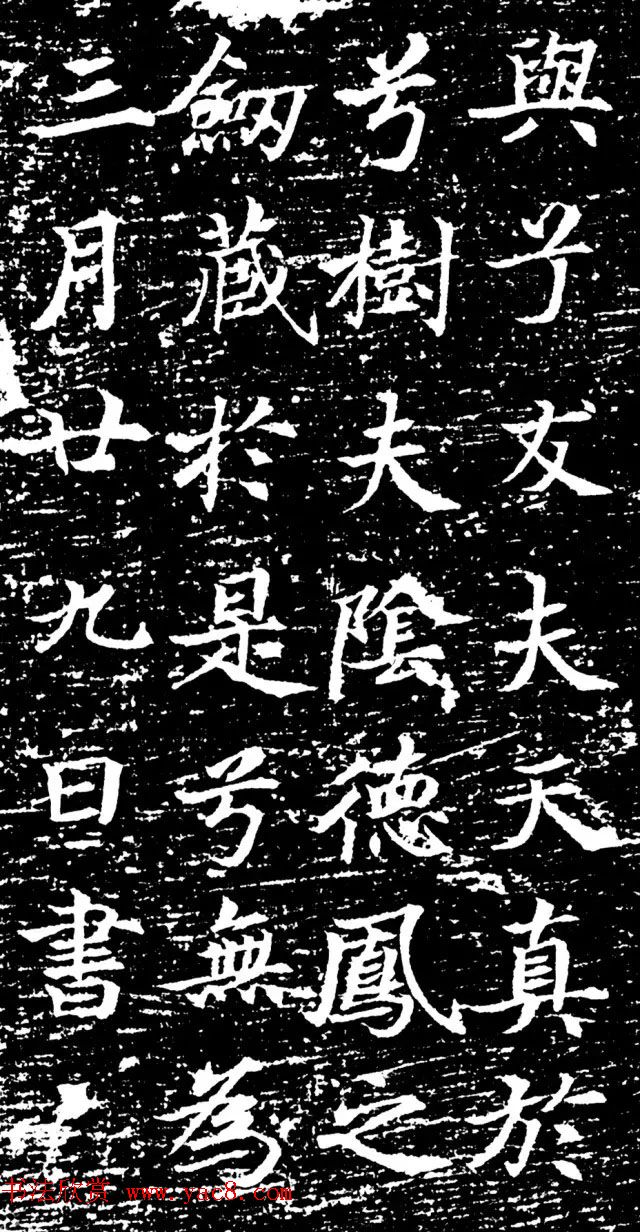 與兮友夫天真於
兮樹夫陰德鳳之
劒藏於是兮無為
三月廿九日書
书法欣赏 www.yac8.com